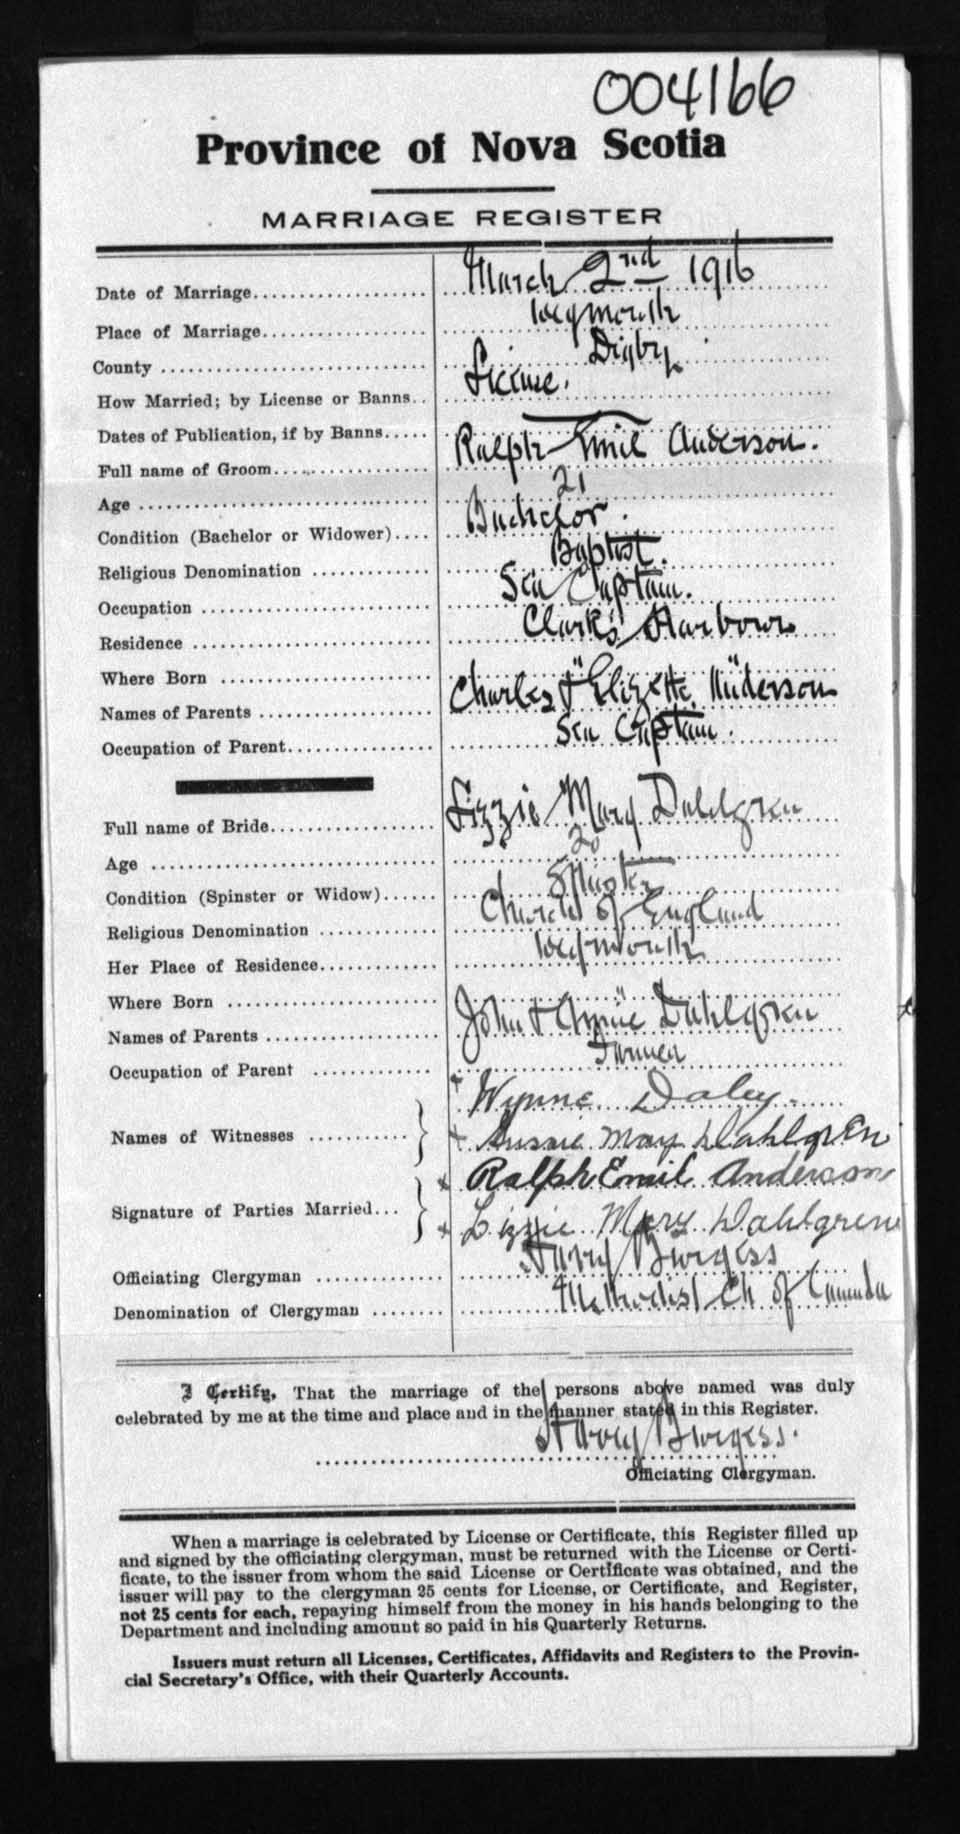 004166
Province of Nova Scotia
MARRIAGE REGISTER
Date of Marriage.................. March 2nd 1916
Place of Marriage................. Weymouth
County ........................... Digby
How Married; by License or Banns.. License.
Dates of Publication, if by Banns.....
Full name of Groom................ Ralph Emil Anderson.
Age .............................. 21
Condition (Bachelor or Widower).... Bachelor.
Religious Denomination ............ Baptist.
Occupation ....................... Sea Captain.
Residence ........................ Clark's Harbour
Where Born ....................... " "
Names of Parents ................. Charles & Anderson
Occupation of Parent.............. Sea Captain.
Full name of Bride................ Lizzie Mary Dahlgren
Age .............................. 20
Condition (Spinster or Widow)...... Spinster
Religious Denomination ............ Church of England
Her Place of Residence............ Weymouth
Where Born ....................... "
Names of Parents ................. John & Annie Dahlgren
Occupation of Parent ............. Farmer
Names of Witnesses .......... } x Wynne Daley.
x Sussie May Dahlgren
Signature of Parties Married... } x Ralph Emil Anderson
x Lizzie Mary Dahlgren
Officiating Clergyman ............ Harry Burgess
Denomination of Clergyman ........ Methodist Ch of Canada
I Certify, That the marriage of the persons above named was duly
celebrated by me at the time and place and in the manner stated in this Register.
Harry Burgess.
Officiating Clergyman.
When a marriage is celebrated by License or Certificate, this Register filled up
and signed by the officiating clergyman, must be returned with the License or Certi-
ficate, to the issuer from whom the said License or Certificate was obtained, and the
issuer will pay to the clergyman 25 cents for License, or Certificate, and Register,
not 25 cents for each, repaying himself from the money in his hands belonging to the
Department and including amount so paid in his Quarterly Returns.
Issuers must return all Licenses, Certificates, Affidavits and Registers to the Provin-
cial Secretary's Office, with their Quarterly Accounts.